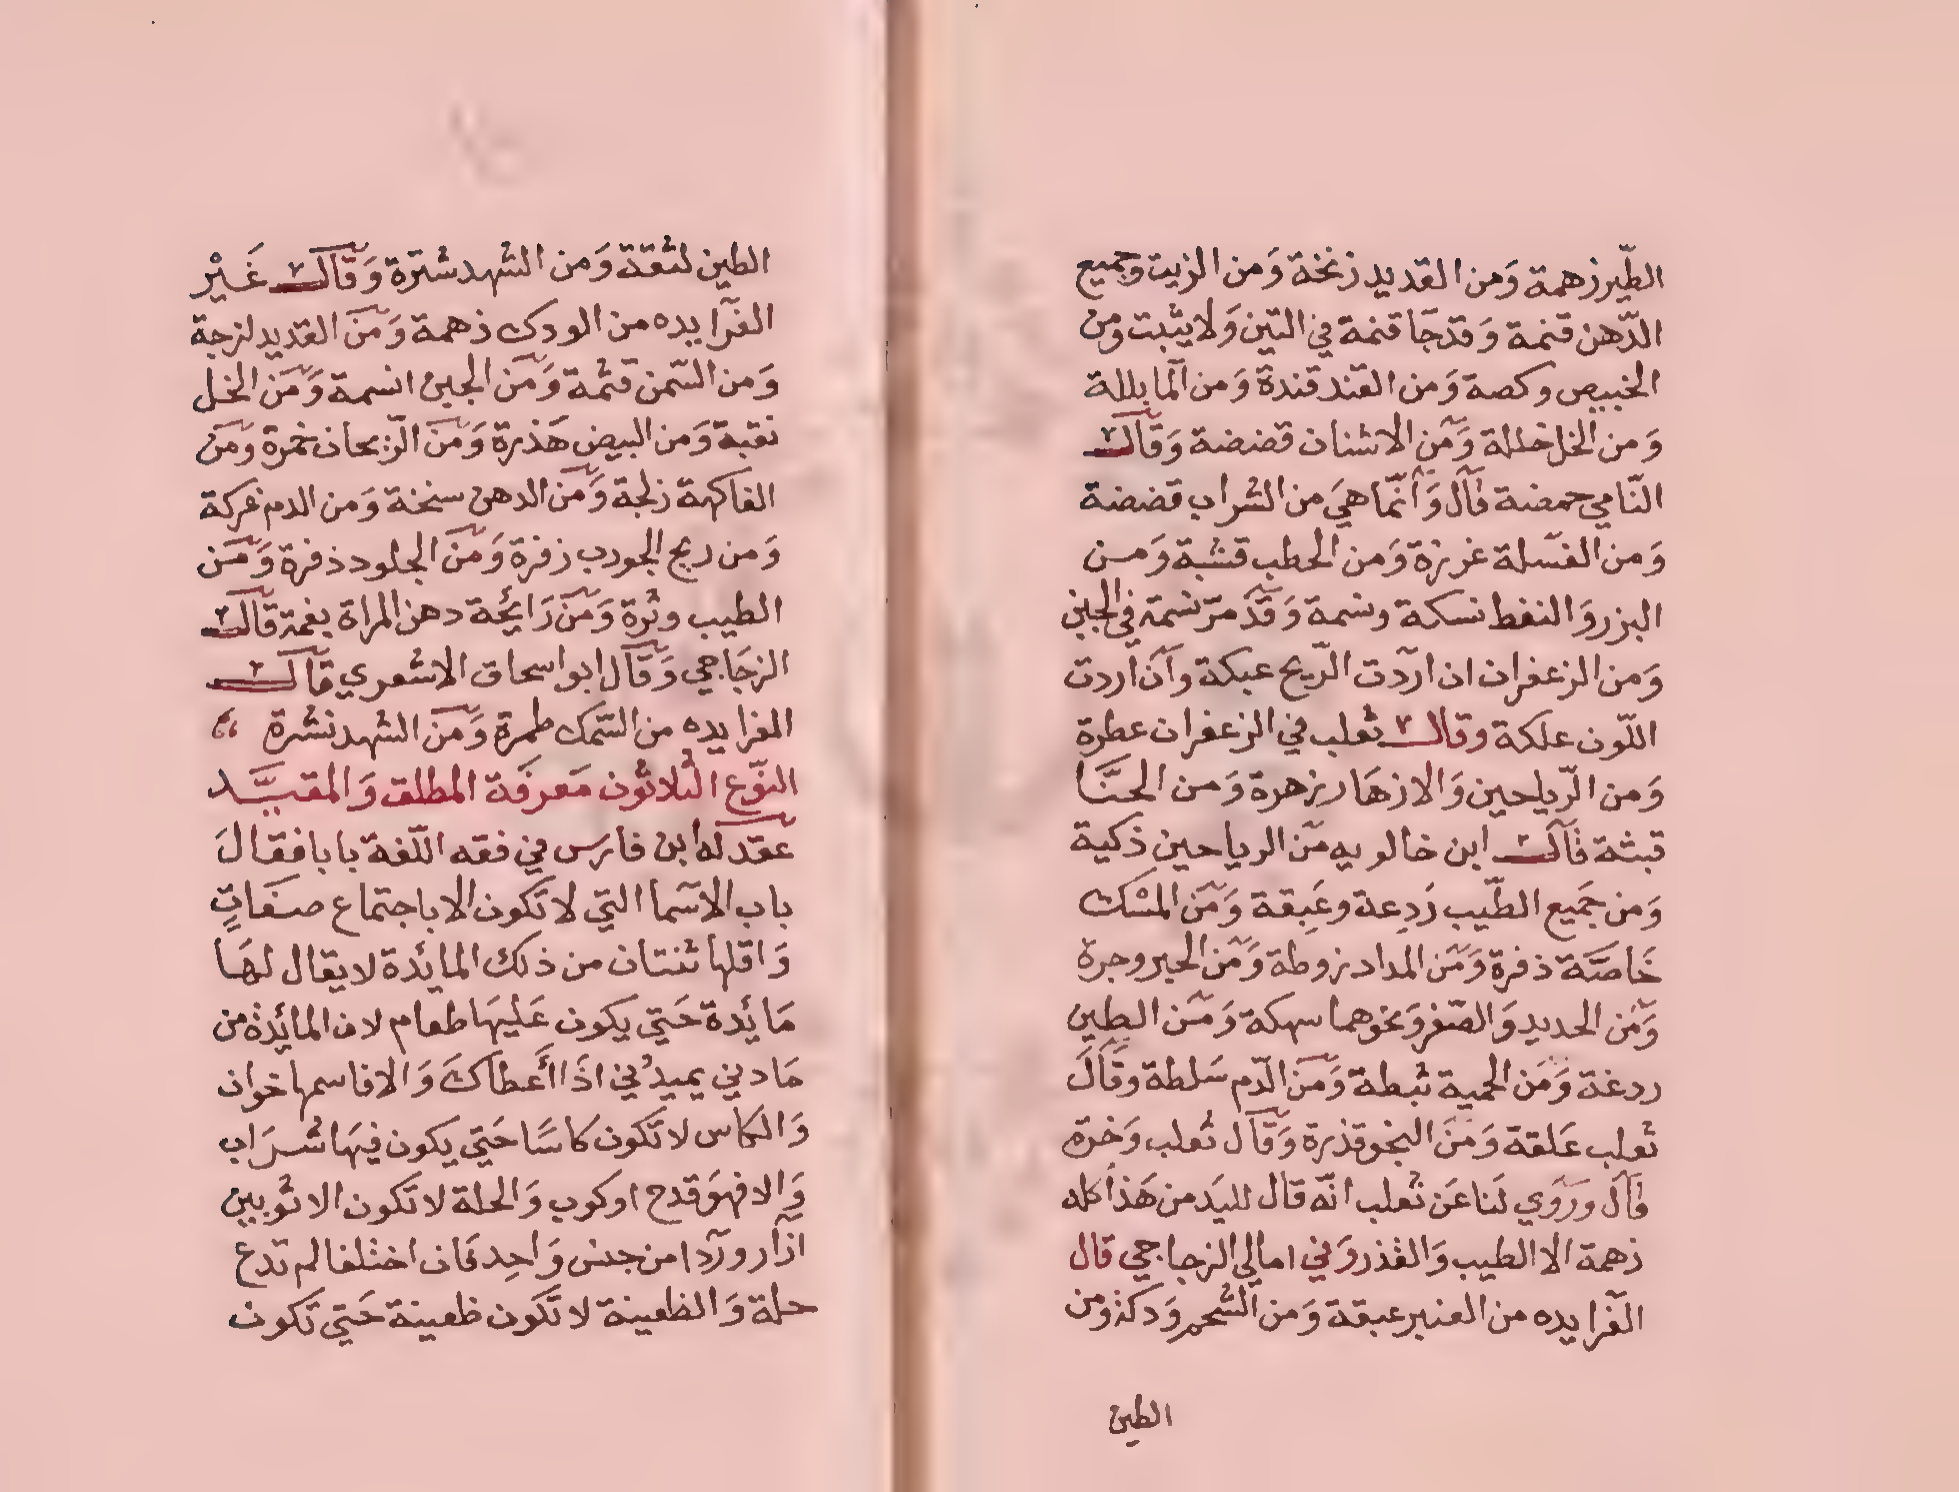 الطّير زهمة وَمن القديد زنخة وَمن الزيت وجميع
الدّهن قنمة وَقدجَا قنمة في التين وَلا يثبت ومن
الخبيص وكصة وَمن القند قندة وَمن آلما بللة
وَمن الخل خللة وَمن الاشنان قضضة وَقالَ
النّامي حمضة قال وَانّما هيَ من الشراب قضضة
وَمن الغسلة غرزة وَمن الحطب قشبة وَمن
البزر وَالنفط نسكة ونسمة وَقدَ مرّ نسمة في الجبن
وَمن الزعفران ان اردت الرّيح عبكة وآن اردت
اللّون علكة وقال ثعلب في الزعفران عطرة
وَمن الرّياحين وَالازهَار زهرة وَمن الحنَّا
قبثة قال ابن خالويه من الرياحين ذكية
وَمن جَميع الطّيب رَدِعة وعَبِقة وَمَن المسْك
خَاصَّة ذفرة وَمَن المداد زوطة وَمَن الحبر وجرة
وَمَن الحديد وَالصّفر وَنحوهما سهكة وَمَن الطين
ردغة وَمَن الحمية ثبطة وَمَن الدّم سَلطة وقَالَ
ثعلب عَلقة وَمَن النجو قذرة وَقَال ثعلب وَخرة
قالَ وَرَوي لَنا عَن ثعلب انّه قال لليَد من هَذا كله
ذهمة الا الطيب وَالقذر وَفي امالي الزجاجي قال
الفَّرا يده من العنبر عبقة وَمن الشحم وَدكة ومن
الطين
الطين لثقة وَمن الشهد شترة وَقال غَيْر
الفَّرا يده من الودك ذهمة وَمَن القديد لزجة
وَمن السّمن قثمة وَمَن الجبن انسمة وَمَن الخل
نقبة وَمن البيض هَذرة وَمَن الرّيحان خمرة ومَن
الفاكهة زلجة وَمَن الدهن سنخة وَمن الدم عركة
وَمن ريح الجورب زفرة وَمَن الجلود ذفرة وَمَن
الطيب وثرة وَمَن رَايحَة دهن المراة بغمة قال
الزجَاجي وَقَال ابو اسحاق الاشعري قَال
الفرا يده من السّمك طمرة وَمَن الشهد نشرة
النّوع الثلاثون مَعرفَة المطلق وَالمقيَّد
عقَد له ابن فارس في فقه اللّغة بابا فقالَ
باب الاسَما التي لا تكون الا باجتماع صفَاتٍ
وَاقلها ثنتان من ذلك المائدة لا يقال لهَا
مَائدة حَتي يكون عَليهَا طعام لان المائدة من
مَادني يميدُني اذَا أَعطاكَ وَالا فاسمها خوان
وَالكاس لا تكون كَاسَا حَتي يكون فيهَا شرَاب
وَالا فهوَ قدح او كوب وَالحلة لا تكون الا ثوبين
ازار وردا من جنس وَاحِد فَان اختلفا لم تدع
حلة وَالظعينة لا تكون ظعينة حَتي تكون